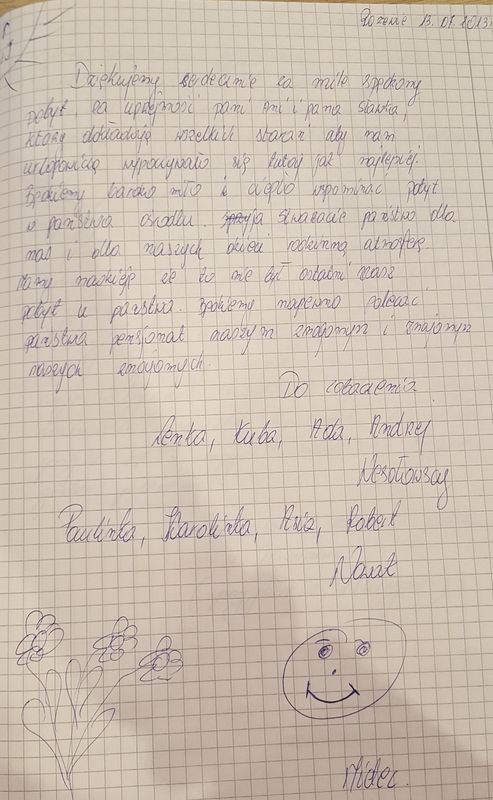 13.07.2013r
Dziękujemy serdecznie za mile spędzony
pobyt, za uprzejmość pani Ani i pana Sławka,
którzy dokładają wszelkich starań aby nam
urlopowiczą wypoczywało się tutaj jak najlepiej.
Będziemy bardzo miło i ciepło wspominać pobyt
w państwa ośrodku. Stwarzacie państwo dla
nas i dla naszych dzieci rodzinną atmosferę
Mamy nadzieję że to nie był ostatni nasz
pobyt u państwa. Będziemy napewno polecać
państwa pensjonat naszym znajomym i znajomym
naszych znajomych.
Do zobaczenia
Lenka, Kuba, Ada, Andrzej
Wesołowscy
Paulinka, Karolinka, Ania, Robert
Nowak